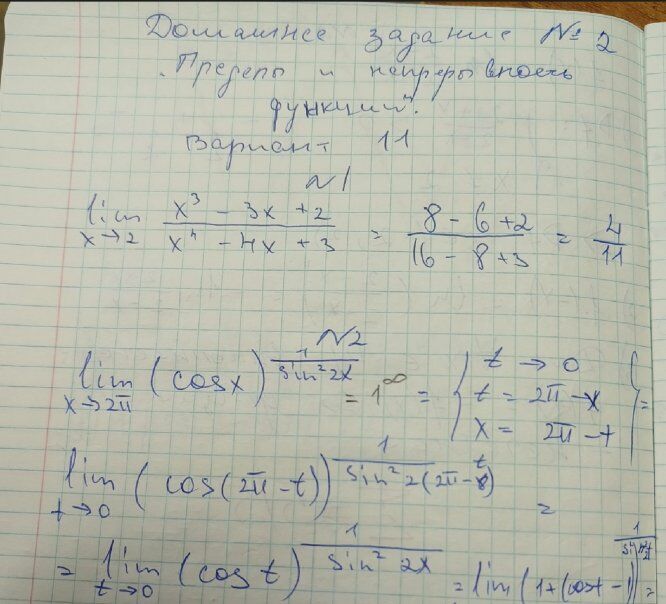 Домашнее задание № 2
"Пределы и непрерывность
функций".
Вариант 11
N1
lim x→2 (x³ - 3x + 2)/(x⁴ - 4x + 3) = (8 - 6 + 2)/(16 - 8 + 3) = 4/11
N2
lim x→2π (cosx)^(1/sin² 2x) = 1^∞ = { t → 0, t = 2π - x, x = 2π - t } =
lim t→0 (cos(2π - t))^(1/sin² 2(2π - t)) =
= lim t→0 (cos t)^(1/sin² 2x) = lim (1 + (cost - 1)) =